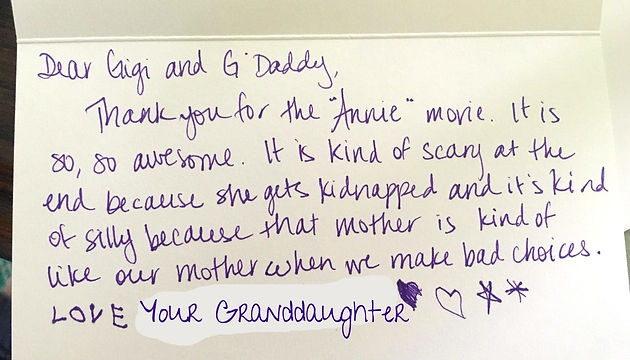 Dear Gigi and G'Daddy,
Thank you for the "Annie" movie. It is
so, so awesome. It is kind of scary at the
end because she gets kidnapped and it's kind
of silly because that mother is kind of
like our mother when we make bad choices.
LOVE Your Granddaughter